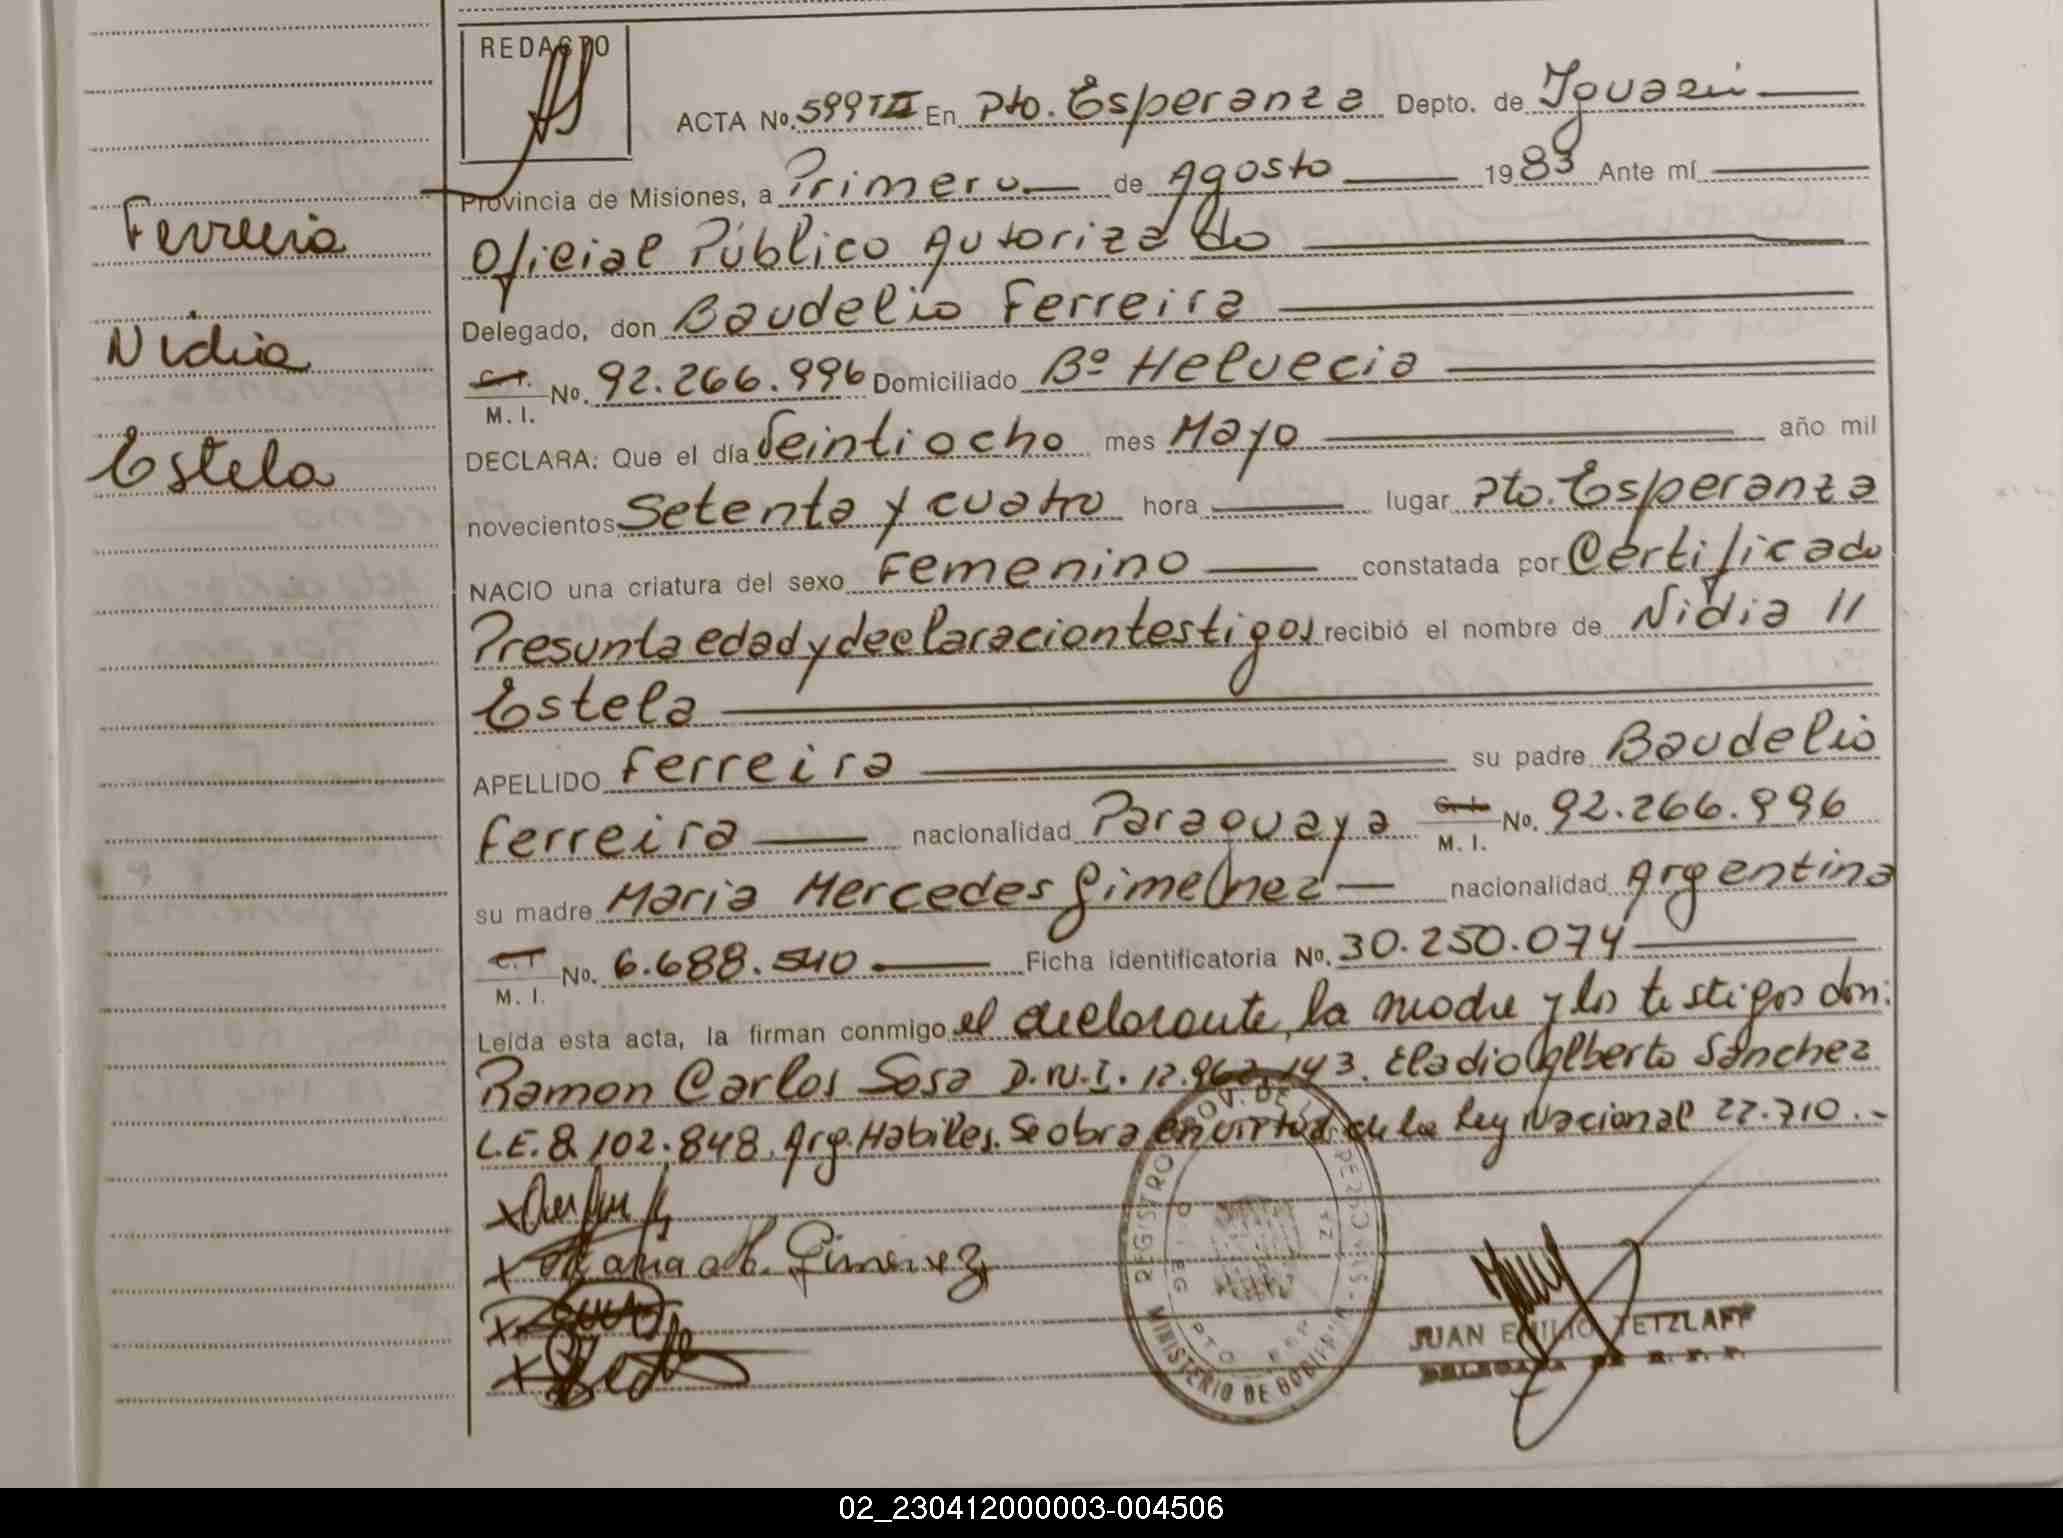 REDACTO
ACTA No. 599 TII En Pto. Esperanza Depto. de Iguazú
Provincia de Misiones, a Primero de Agosto 1983 Ante mí
Oficial Público Autorizado
Delegado, don Baudelio Ferreira
C.I. M. I. No. 92.266.996 Domiciliado Bº Helvecia
DECLARA: Que el día Veintiocho mes Mayo año mil
novecientos Setenta y cuatro hora lugar Pto. Esperanza
NACIO una criatura del sexo Femenino constatada por Certificado
Presunta edad y declaracion testigos recibió el nombre de Nidia //
Estela
APELLIDO Ferreira su padre Baudelio
Ferreira nacionalidad Paraguaya C.I. M. I. No. 92.266.996
su madre Maria Mercedes Gimenez nacionalidad Argentina
C.I M. I. No. 6.688.540 Ficha identificatoria No. 30.250.074
Leída esta acta, la firman conmigo el declarante, la madre y los testigos don:
Ramon Carlos Sosa D.N.I. 12.962.143. Eladio Alberto Sanchez
L.E. 8.102.848. Arg. Habiles. Se obra en virtud de la Ley Nacional 22.710.-
Ferreira
Nidia
Estela
x
x Maria M. Gimenez
x
x
REGISTRO PROV. DE LAS PERSONAS
MINISTERIO DE GOBIERNO
PTO ESP
JUAN EMILIO TETZLAFF
02_230412000003-004506